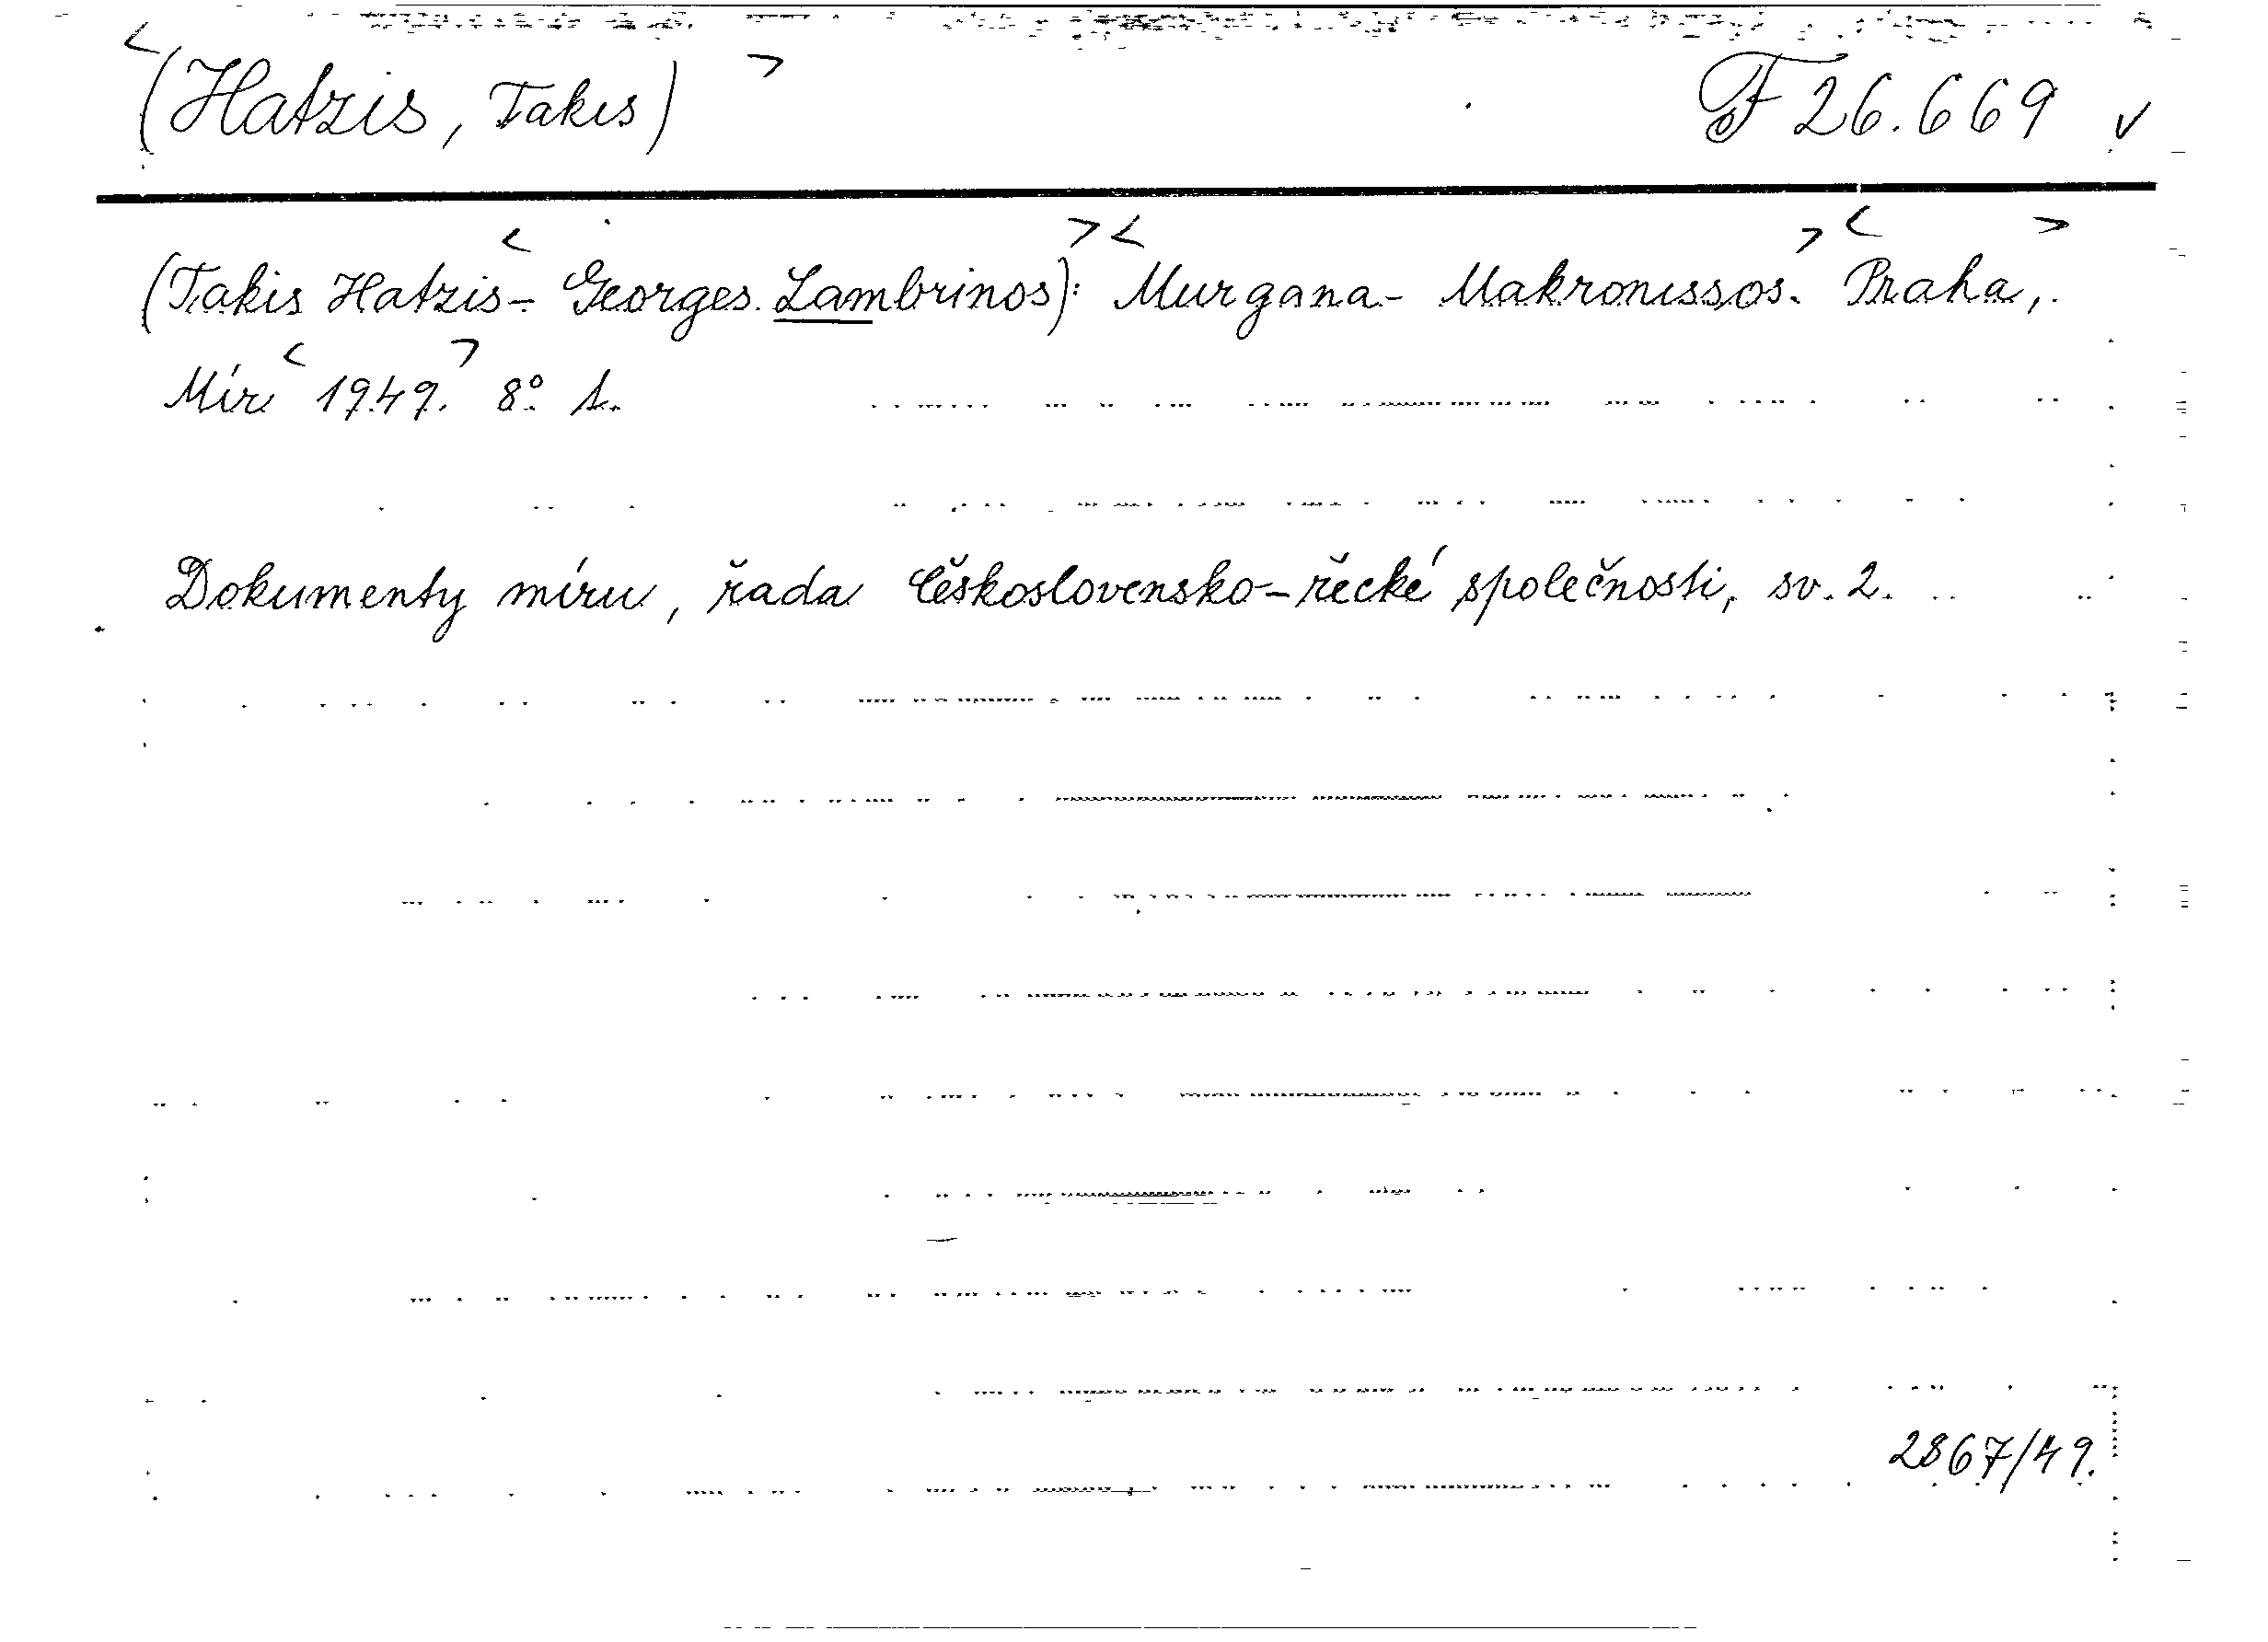 <(Hatzis, Takis)> F 26.669 v
(Takis Hatzis-<Georges Lambrinos):><Murgana- Makronissos.> <Praha,>
Mír <1949.> 8° 1.
Dokumenty míru, řada Československo-řecké společnosti, sv. 2.
2867/49.